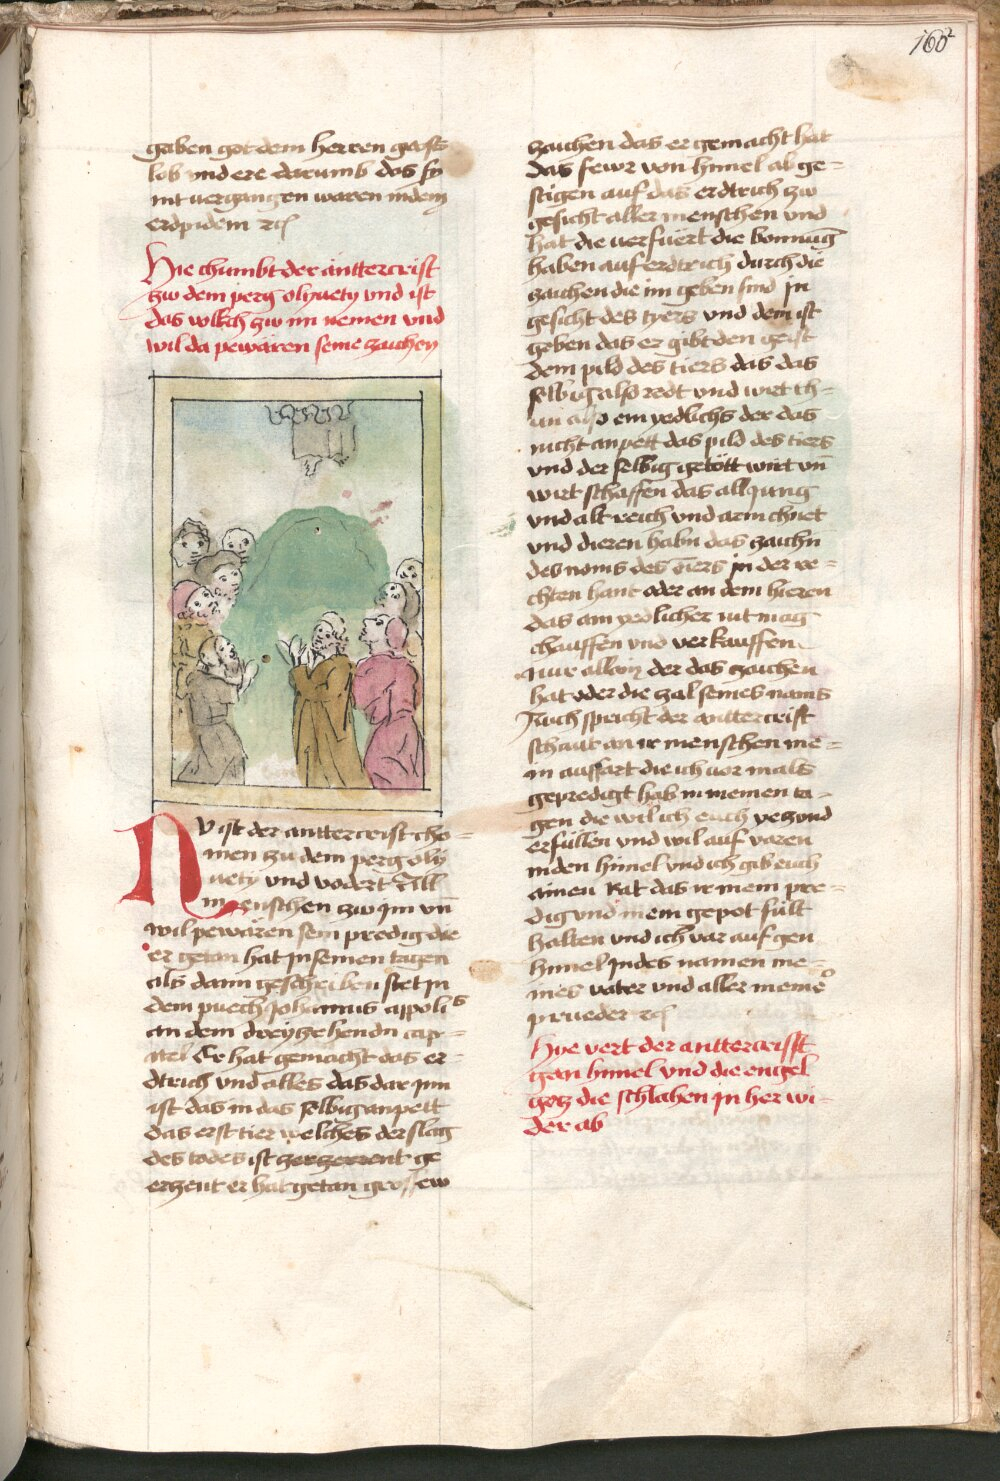 160
gaben got dem herren gross
lob und ere darumb das sy
nit vergangen waren in dem
erdpidem etc
Hie chumbt der anttercrist
zw dem perg olyvety und ist
das volkch zw im nemen und
wil da pewaren seine zaichen
Nu ist der anttercrist cho=
men zu dem perg oly
vety und vodert All
menschen zw im un
wil pewaren sein predig die
er getan hat in seinen tagen
als dann geschriben stet in
dem puech Johannis appolis
an dem dreyzehendn cap=
itel Er hat gemacht das er=
dtrich und alles das dar inn
ist das in das selbig anpett
das erst tier welches der slag
des todes ist
er hat getan grosse
zaichen das er gemacht hat
das fewr von himel ab ge=
stigen auf das erdtrich zw
gesicht aller menschen und
hat die verfuert die bonnug
haben auf erdtrich durch die
zaichen die im geben sind in
gesicht des tyers und dem ist
geben das er gibt den geist
dem pild des tiers das das
selbig also redt und wirt th=
un also ein yedlichs der das
nicht anpett das pild des tiers
und der selbig getött wirt un
wirt schaffen das all jung
und alt reich und arm chnet
und dieren habn das zaichn
des noms des tiers in der re=
chten hant oder an dem hieren
das am yedlicher nit mag
chauffen und verkauffen
nur allain der das zaichen
hat oder die zal seines nams
Auch spricht der anttercrist
schaut an ir menschen me=
in auffart die ich vor mals
gepredigt hab in meinen ta=
gen die wil ich euch yezund
erfullen und wil auf varen
in den himel und ich gib euch
ainen Rat das ir mein pre=
dig und mein gepot sült
halten und ich var auf gen
himel in des namen me=
ines vater und aller meine
prueder etc
Hye vert der anttercrisst
gen himel und die engel
gotz die schlahen in her wi=
der ab